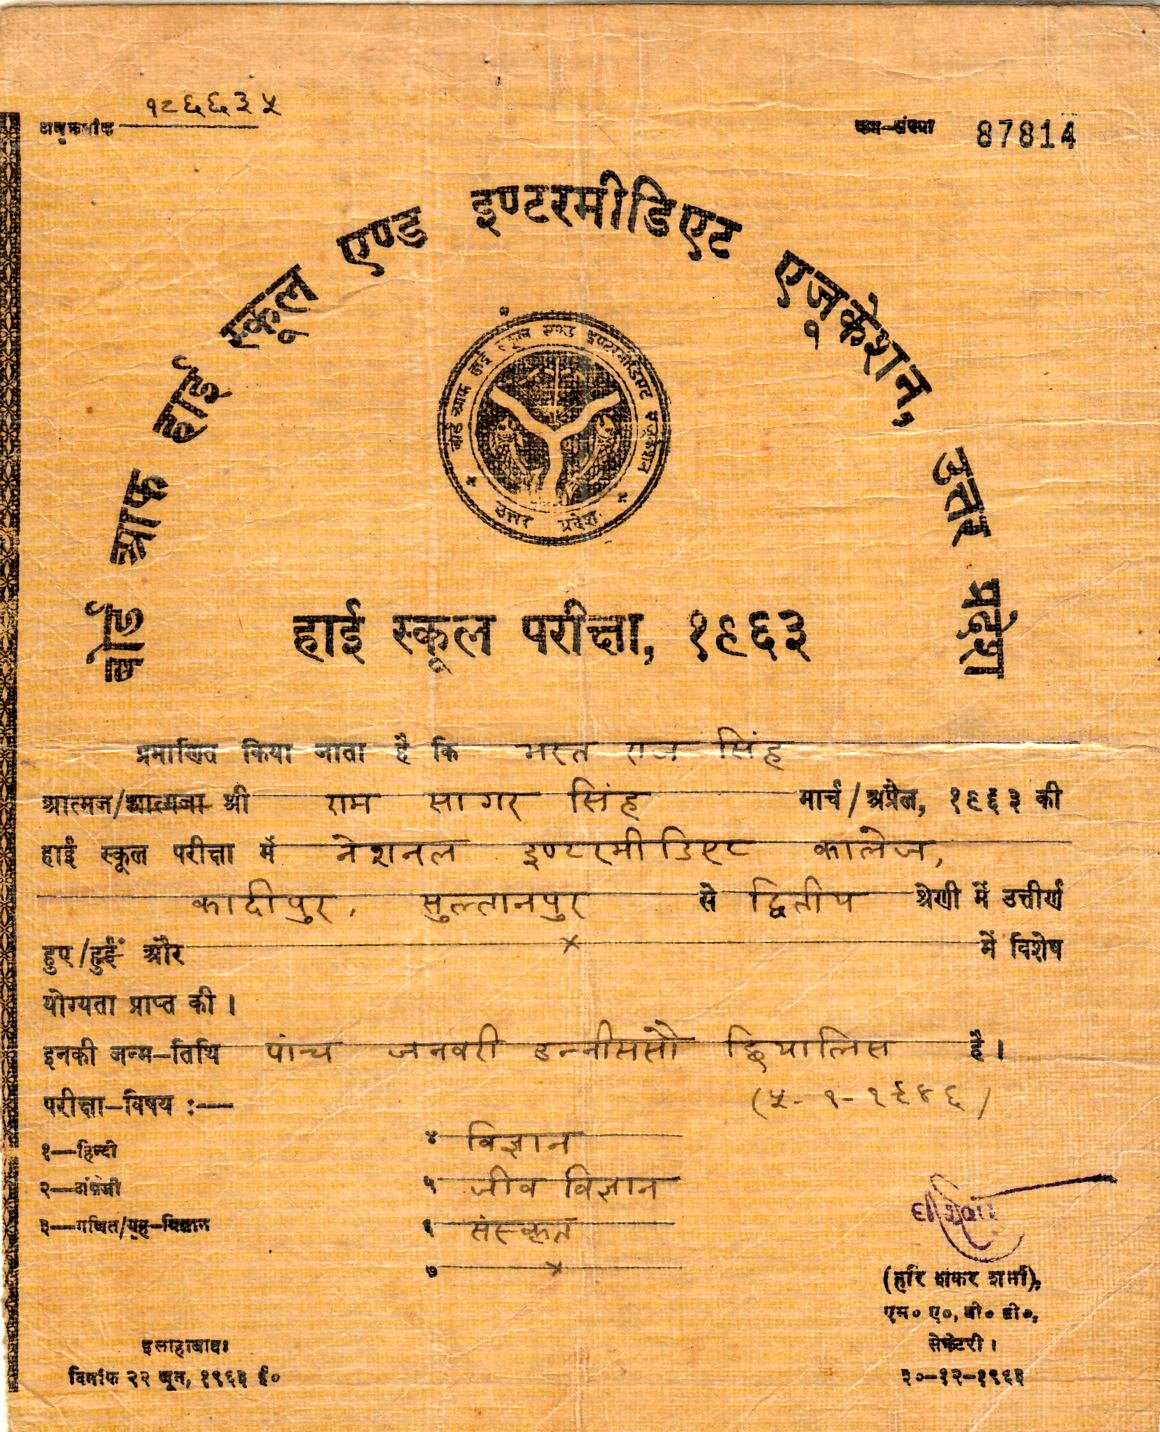 अनुक्रमांक १८६६३५
क्रम-संख्या 87814
बोर्ड आफ हाई स्कूल एण्ड इण्टरमीडिएट एजूकेशन, उत्तर प्रदेश
बोर्ड आफ हाई स्कूल एण्ड इण्टरमीडिएट एजूकेशन
उत्तर प्रदेश
हाई स्कूल परीक्षा, १९६३
प्रमाणित किया जाता है कि मस्त राज सिंह
आत्मज/आत्मजा श्री राम सागर सिंह मार्च/अप्रैल, १९६३ की
हाई स्कूल परीक्षा में नेशनल इण्टरमीडिएट कालेज,
कादीपुर, सुल्तानपुर से द्वितीय श्रेणी में उत्तीर्ण
हुए/हुई और × में विशेष
योग्यता प्राप्त की।
इनकी जन्म-तिथि पांच जनवरी उन्नीससौ छियालिस है।
(५-१-१९४६)
परीक्षा-विषय :—
१—हिन्दी ४ विज्ञान
२—अंग्रेजी ५ जीव विज्ञान
३—गणित/गृह-विज्ञान ६ संस्कृत
७ ×
(हरि शंकर शर्मा),
एम० ए०, बी० टी०,
सेक्रेटरी।
२०-१२-१९६३
इलाहाबाद:
दिनांक २२ जून, १९६३ ई०